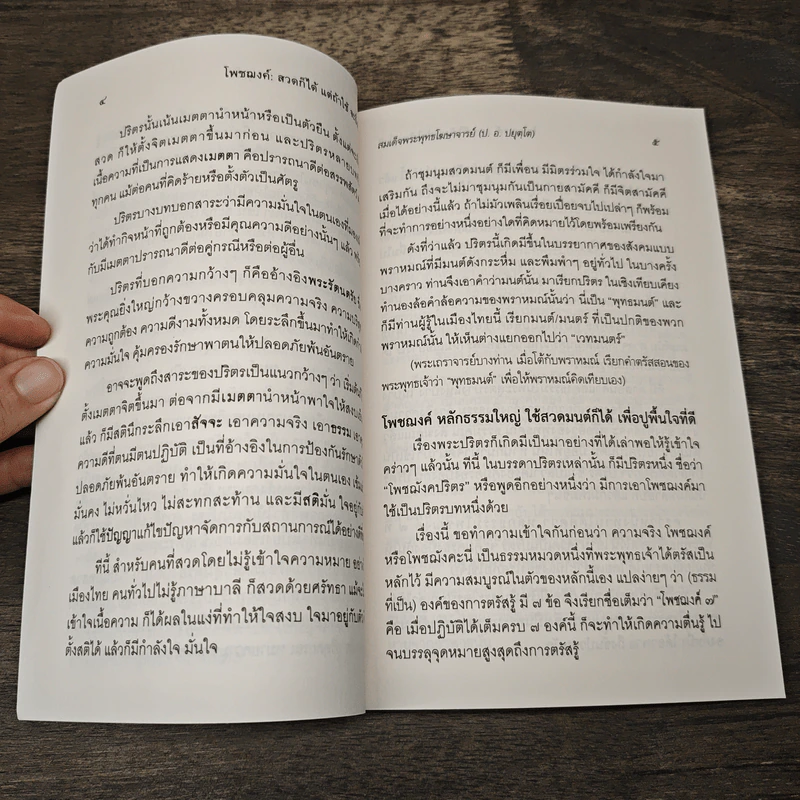 ๔
โพชฌงค์: สวดก็ได้ แต่ถ้าใช้
ปริตรนั้นเน้นเมตตานำหน้าหรือเป็นตัวยืน ตั้งแต่จะเริ่ม
สวด ก็ให้ตั้งจิตเมตตาขึ้นมาก่อน และปริตรหลายบท
เนื้อความที่เป็นการแสดงเมตตา คือปรารถนาดีต่อสรรพสัตว์
ทุกคน แม้ต่อคนที่คิดร้ายหรือตั้งตัวเป็นศัตรู
ปริตรบางบทบอกสาระว่ามีความมั่นใจในตนเองที่
ว่าได้ทำกิจหน้าที่ถูกต้องหรือมีคุณความดีอย่างนั้นๆ แล้ว
กับมีเมตตาปรารถนาดีต่อคู่กรณีหรือต่อผู้อื่น
ปริตรที่บอกความกว้างๆ ก็คืออ้างอิงพระรัตนตรัย
พระคุณยิ่งใหญ่กว้างขวางครอบคลุมความจริง
ความถูกต้อง ความดีงามทั้งหมด โดยระลึกขึ้นมาทำให้เกิด
ความมั่นใจ คุ้มครองรักษาพาตนให้ปลอดภัยพ้นอันตราย
อาจจะพูดถึงสาระของปริตรเป็นแนวกว้างๆ ว่า เริ่มต้น
ตั้งเมตตาจิตขึ้นมา ต่อจากมีเมตตานำหน้าพาใจให้สงบ
แล้ว ก็มีสตินึกระลึกเอาสัจจะ เอาความจริง เอาธรรม
ความดีที่ตนมีตนปฏิบัติ เป็นที่อ้างอิงในการป้องกันรักษา
ปลอดภัยพ้นอันตราย ทำให้เกิดความมั่นใจในตนเอง
มั่นคง ไม่หวั่นไหว ไม่สะทกสะท้าน และมีสติมั่น ใจอยู่
แล้วก็ใช้ปัญญาแก้ไขปัญหาจัดการกับสถานการณ์ได้อย่างดี
ทีนี้ สำหรับคนที่สวดโดยไม่รู้เข้าใจความหมาย อย่าง
เมืองไทย คนทั่วไปไม่รู้ภาษาบาลี ก็สวดด้วยศรัทธา แม้จะไม่
เข้าใจเนื้อความ ก็ได้ผลในแง่ที่ทำให้ใจสงบ ใจมาอยู่กับตัว
ตั้งสติได้ แล้วก็มีกำลังใจ มั่นใจ
สมเด็จพระพุทธโฆษาจารย์ (ป. อ. ปยุตฺโต)
๕
ถ้าชุมนุมสวดมนต์ ก็มีเพื่อน มีมิตรร่วมใจ ได้กำลังใจมา
เสริมกัน ถึงจะไม่มาชุมนุมกันเป็นกายสามัคคี ก็มีจิตสามัคคี
เมื่อได้อย่างนี้แล้ว ถ้าไม่มัวเพลินเรื่อยเปื่อยจบไปเปล่าๆ ก็พร้อม
ที่จะทำการอย่างหนึ่งอย่างใดที่คิดหมายไว้โดยพร้อมเพรียงกัน
ดังที่ว่าแล้ว ปริตรนี้เกิดมีขึ้นในบรรยากาศของสังคมแบบ
พราหมณ์ที่มีมนต์ดังกระหึ่ม และพึมพำๆ อยู่ทั่วไป ในบางครั้ง
บางคราว ท่านจึงเอาคำว่ามนต์นั้น มาเรียกปริตร ในเชิงเทียบเคียง
ทำนองล้อคำล้อความของพราหมณ์นั้นว่า นี่เป็น "พุทธมนต์" และ
ก็มีท่านผู้รู้ในเมืองไทยนี้ เรียกมนต์/มนตร์ ที่เป็นปกติของพวก
พราหมณ์นั้น ให้เห็นต่างแยกออกไปว่า "เวทมนตร์"
(พระเถราจารย์บางท่าน เมื่อโต้กับพราหมณ์ เรียกคำตรัสสอนของ
พระพุทธเจ้าว่า "พุทธมนต์" เพื่อให้พราหมณ์คิดเทียบเอง)
โพชฌงค์ หลักธรรมใหญ่ ใช้สวดมนต์ก็ได้ เพื่อปูพื้นใจที่ดี
เรื่องพระปริตรก็เกิดมีเป็นมาอย่างที่ได้เล่าพอให้รู้เข้าใจ
คร่าวๆ แล้วนั้น ทีนี้ ในบรรดาปริตรเหล่านั้น ก็มีปริตรหนึ่ง ชื่อว่า
"โพชฌังคปริตร" หรือพูดอีกอย่างหนึ่งว่า มีการเอาโพชฌงค์มา
ใช้เป็นปริตรบทหนึ่งด้วย
เรื่องนี้ ขอทำความเข้าใจกันก่อนว่า ความจริง โพชฌงค์
หรือโพชฌังคะนี่ เป็นธรรมหมวดหนึ่งที่พระพุทธเจ้าได้ตรัสเป็น
หลักไว้ มีความสมบูรณ์ในตัวของหลักนี้เอง แปลง่ายๆ ว่า (ธรรม
ที่เป็น) องค์ของการตรัสรู้ มี ๗ ข้อ จึงเรียกชื่อเต็มว่า "โพชฌงค์ ๗"
คือ เมื่อปฏิบัติได้เต็มครบ ๗ องค์นี้ ก็จะทำให้เกิดความตื่นรู้ ไป
จนบรรลุจุดหมายสูงสุดถึงการตรัสรู้